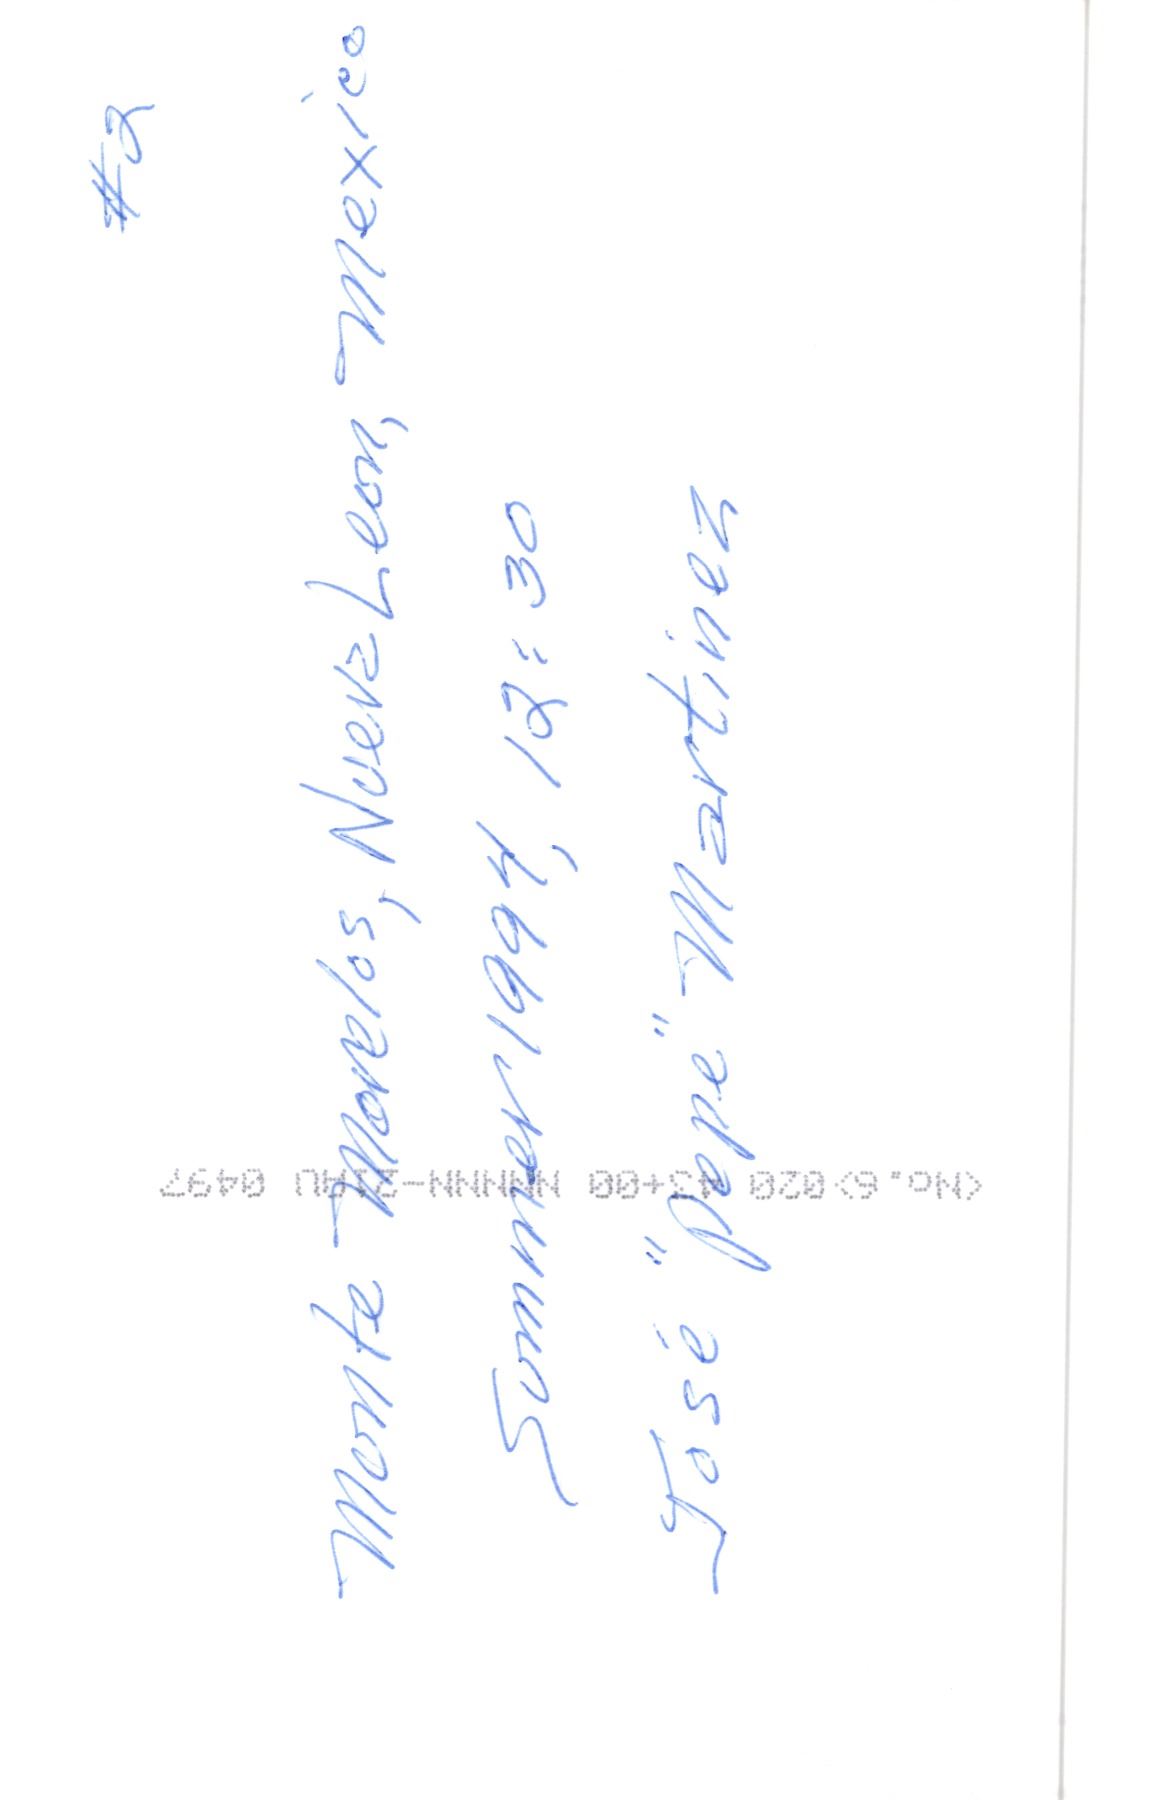 #2
Monte Morelos, Nueva Leon, Mexico
Summer 1994, 12:30
José "pepe" Martinez
<No. 6> 020 43+00 NNNNN-21AU 0497